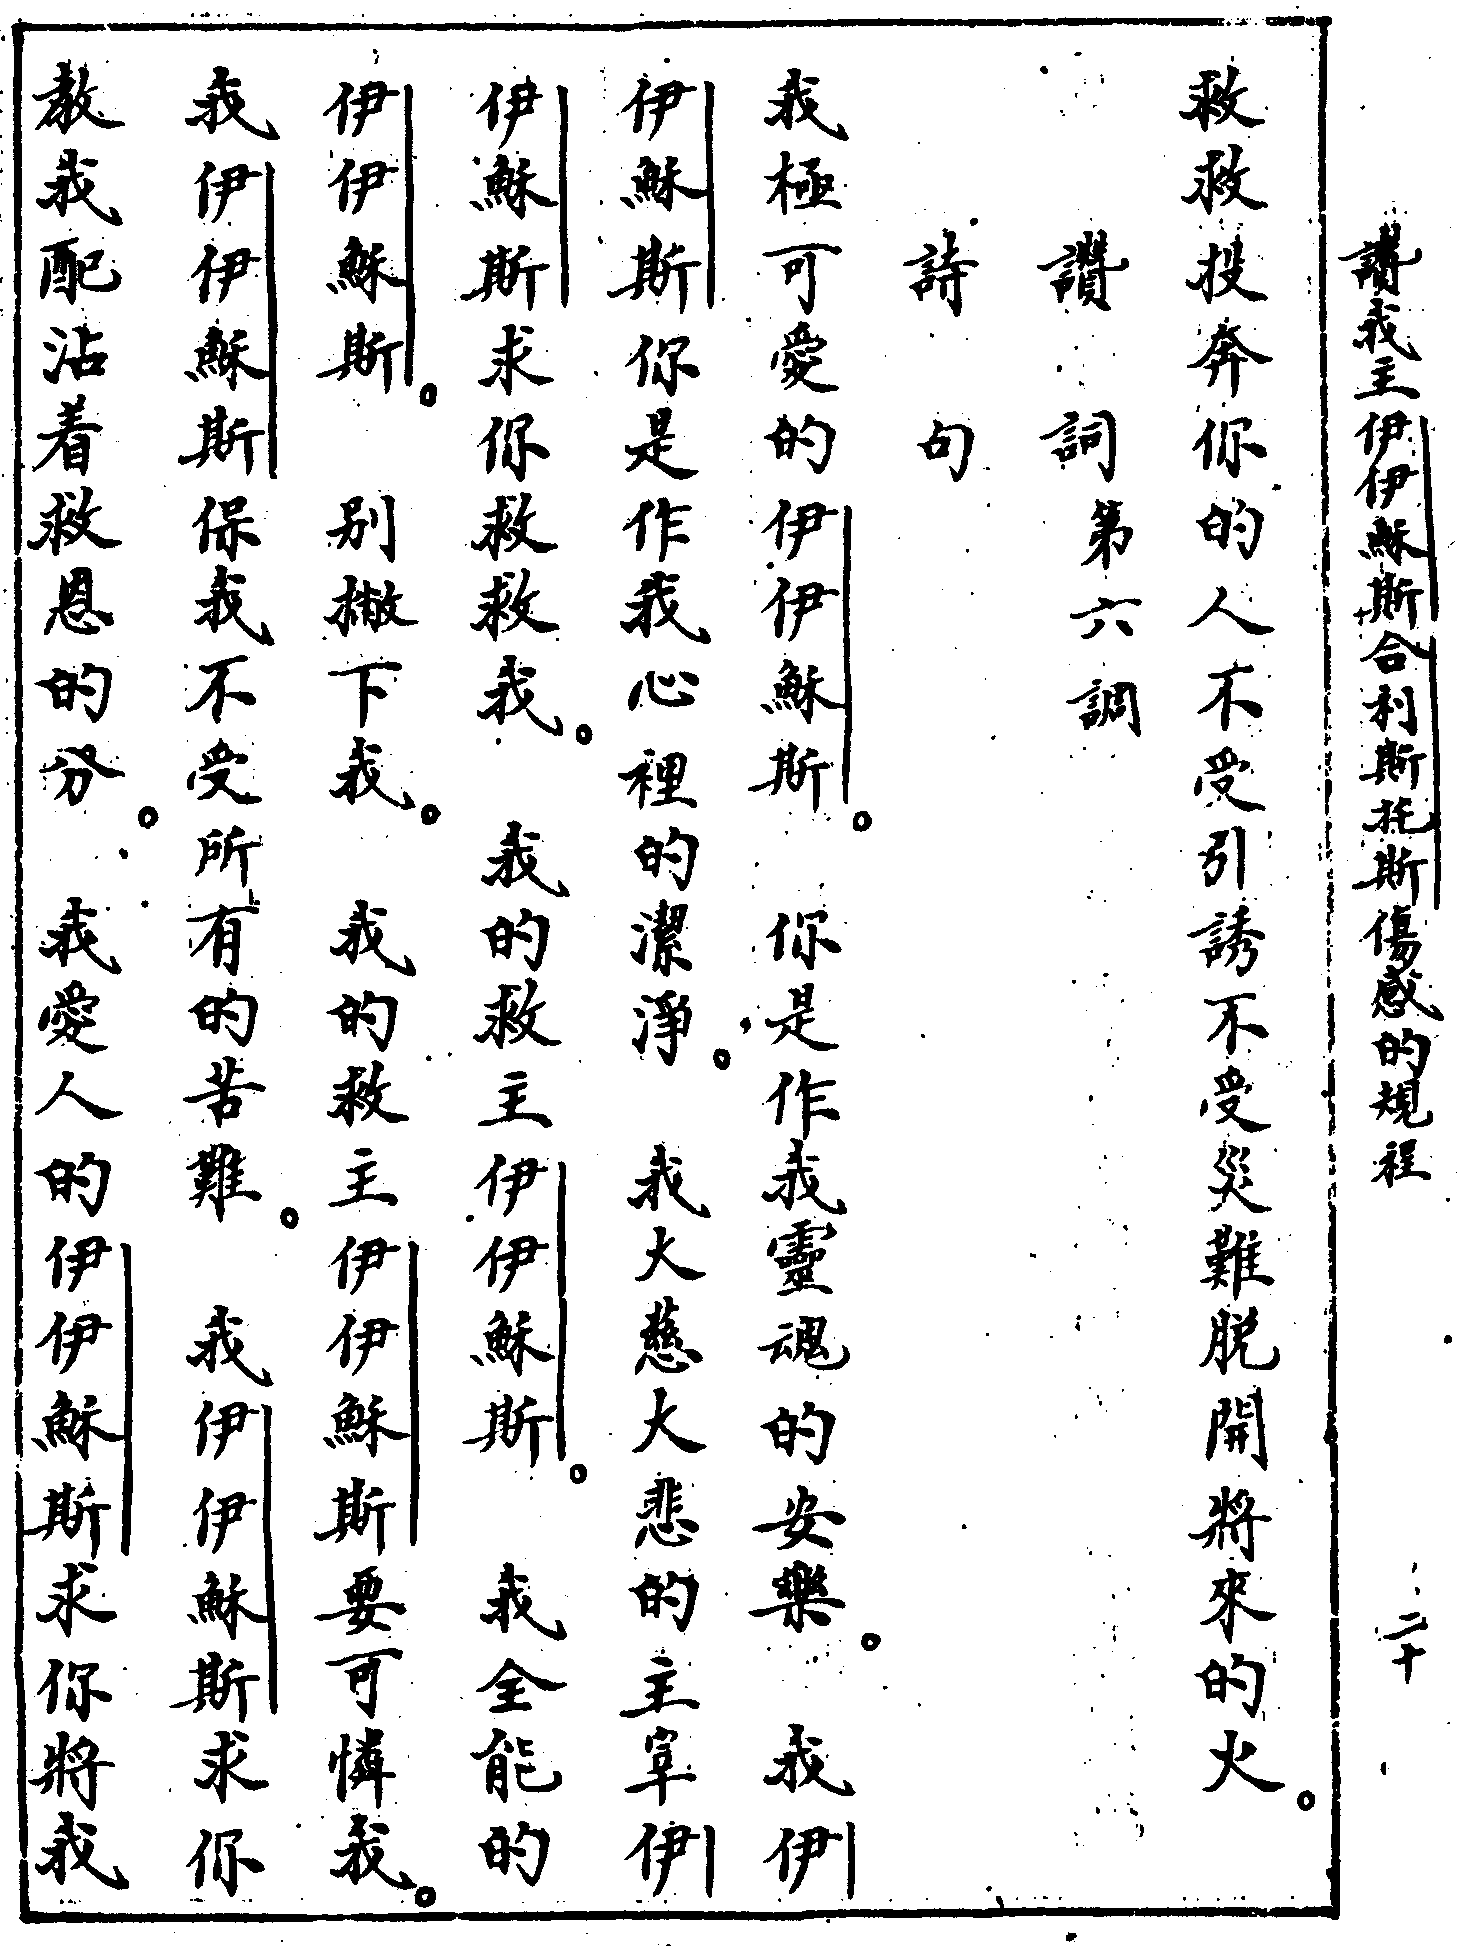 讚我主伊伊穌斯合利斯托斯傷感的規程 二十
救救投奔你的人不受引誘不受災難脱開將來的火。
讚詞第六調
詩句
我極可愛的伊伊穌斯。 你是作我靈魂的安樂。 我伊
伊穌斯你是作我心裡的潔淨。 我大慈大悲的主宰伊
伊穌斯求你救救我。 我的救主伊伊穌斯。 我全能的
伊伊穌斯。 别撇下我。 我的救主伊伊穌斯要可憐我。
我伊伊穌斯保我不受所有的苦難。 我伊伊穌斯求你
教我配沾着救恩的分。 我愛人的伊伊穌斯求你將我